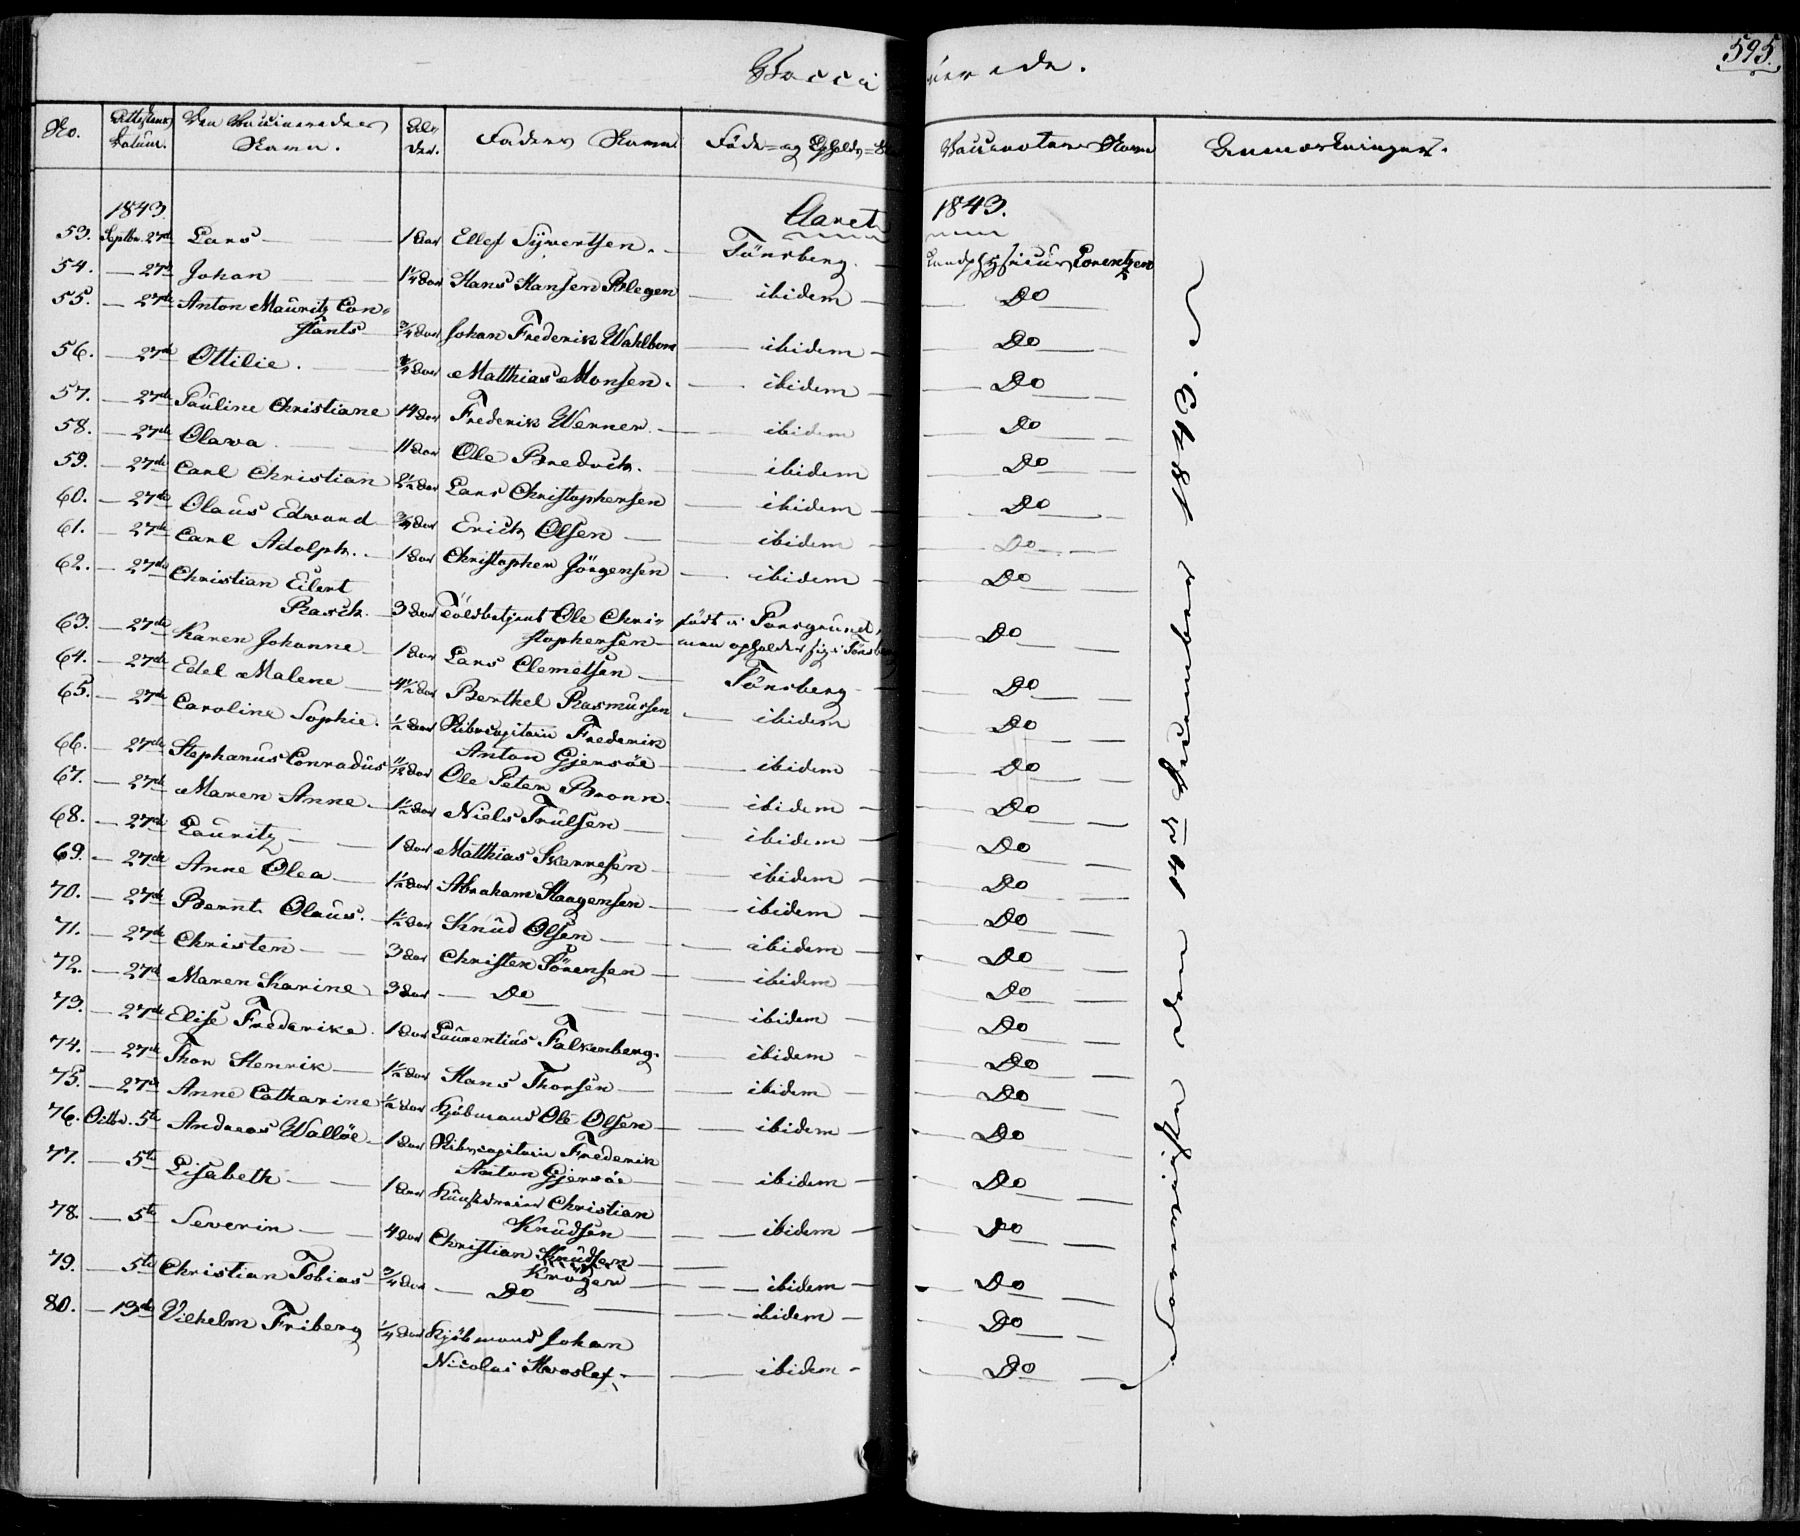 Vaccinerede.
595.
No. Attestens Datum. Den Vaccineredes Navn. Alder. Faders Navn Føde- og Opholds- Vaccinateurs Navn Anmærkninger.
1843. Aaret 1843.
53. Septbr. 27de Lars 1 Aar Ellef Syvertsen. Tönsberg. Landphysicus Lorentzen
54. 27de Johan 1 1/4 Aar Hans Hansen Blegen ibidem Do
55. 27de Anton Mauritz Con-
stants 3/4 Aar Johan Frederik Wahlbom ibidem Do
56. 27de Ottilie. 3/4 Aar Matthias Monsen. ibidem Do
57. 27de Pauline Christiane 14 Aar Frederik Werner. ibidem Do
58. 27de Olava 11 Aar Ole Bredvik. ibidem Do
59. 27de Carl Christian 2 1/2 Aar Lars Christophersen ibidem Do
60. 27de Olaus Edward 3/4 Aar Erich Olsen ibidem Do
61. 27de Carl Adolph. 1 Aar Christopher Jörgensen ibidem Do
62. 27de Christian Eilert
Rasch. 3 Aar Toldbetjent Ole Chri- født i Porsgrund,
stophersen men opholder sig i Tönsberg Do
63. 27de Karen Johanne 1 Aar Lars Clemetsen Tönsberg Do
64. 27de Edel Malene 4 1/2 Aar Berthel Rasmussen ibidem Do
65. 27de Caroline Sophie. 1/2 Aar Skibscapitain Frederik
Anton Gjersöe ibidem Do
66. 27de Stephanus Conradus 11/12 Aar Ole Peter Bronn. ibidem Do
67. 27de Maren Anne 1 1/2 Aar Niels Trulsen ibidem Do
68. 27de Lauritz 1 Aar Matthias Svennesen ibidem Do
69. 27de Anne Olea 1 1/2 Aar Abraham Haagensen ibidem Do
70. 27de Bernt Olaus. 1 1/2 Aar Knud Olsen ibidem Do
71. 27de Christen 3 Aar Christen Sörensen ibidem Do
72. 27de Maren Karine 3 Aar Do ibidem Do
73. 27de Elise Frederike 1 Aar Laurentius Falkenberg. ibidem Do
74. 27de Thor Henrik 1 1/2 Aar Hans Thorsen ibidem Do
75. 27de Anne Catharine 1/2 Aar Kjöbmand Ole Olsen ibidem Do
76. Octbr. 5te Andreas Wallöe 1 Aar Skibscapitain Frederik
Anton Gjersöe ibidem Do
77. 5te Lisabeth 1 Aar Kunstdreier Christian
Knudsen ibidem Do
78. 5te Severin 4 Aar Christian Knudsen
Kroger ibidem Do
79. 5te Christian Tobias 3/4 Aar Do ibidem Do
80. 13de Vilhelm Friberg 1/4 Aar Kjöbmand Johan
Nicolai Hvoslef. ibidem Do
den 14de December 1843.